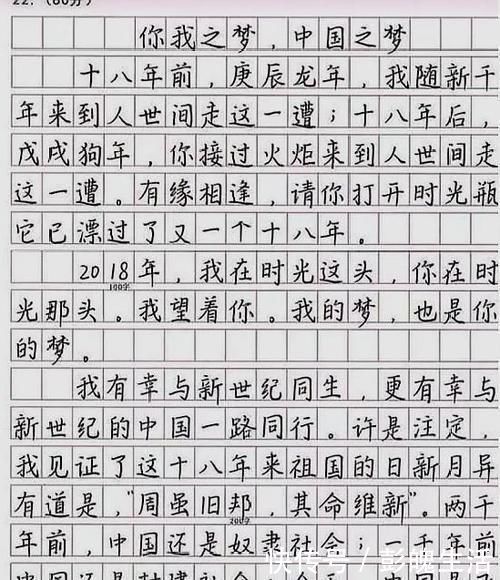 22.（60分）
你我之梦，中国之梦
十八年前，庚辰龙年，我随新千
年来到人世间走这一遭；十八年后，
戊戌狗年，你接过火炬来到人世间走
这一遭。有缘相逢，请你打开时光瓶
它已漂过了又一个十八年。
2018年，我在时光这头，你在时
100字
光那头。我望着你。我的梦，也是你
的梦。
我有幸与新世纪同生，更有幸与
新世纪的中国一路同行。许是注定，
我见证了这十八年来祖国的日新月异
有道是，“周虽旧邦，其命维新”。两千
200字
年前，中国还是奴隶社会；一千年前
快传号／彭